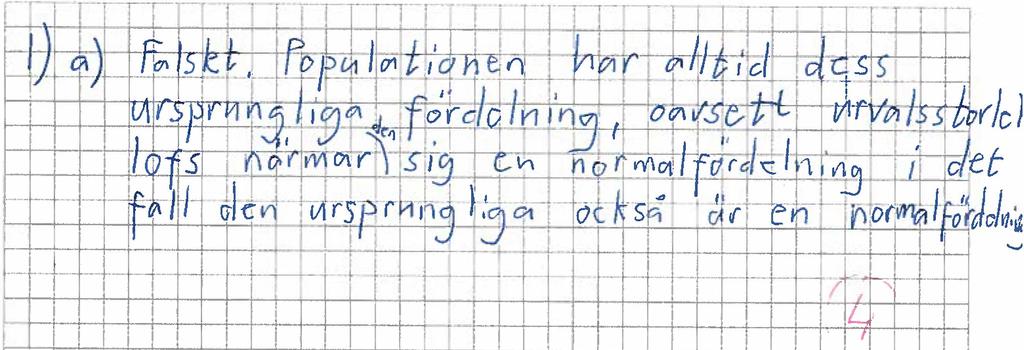 1) a) Falskt. Populationen har alltid dess
ursprungliga fördelning, oavsett urvalsstorlek
lofs närmar den sig en normalfördelning i det
fall den ursprungliga också är en normalfördelning
4